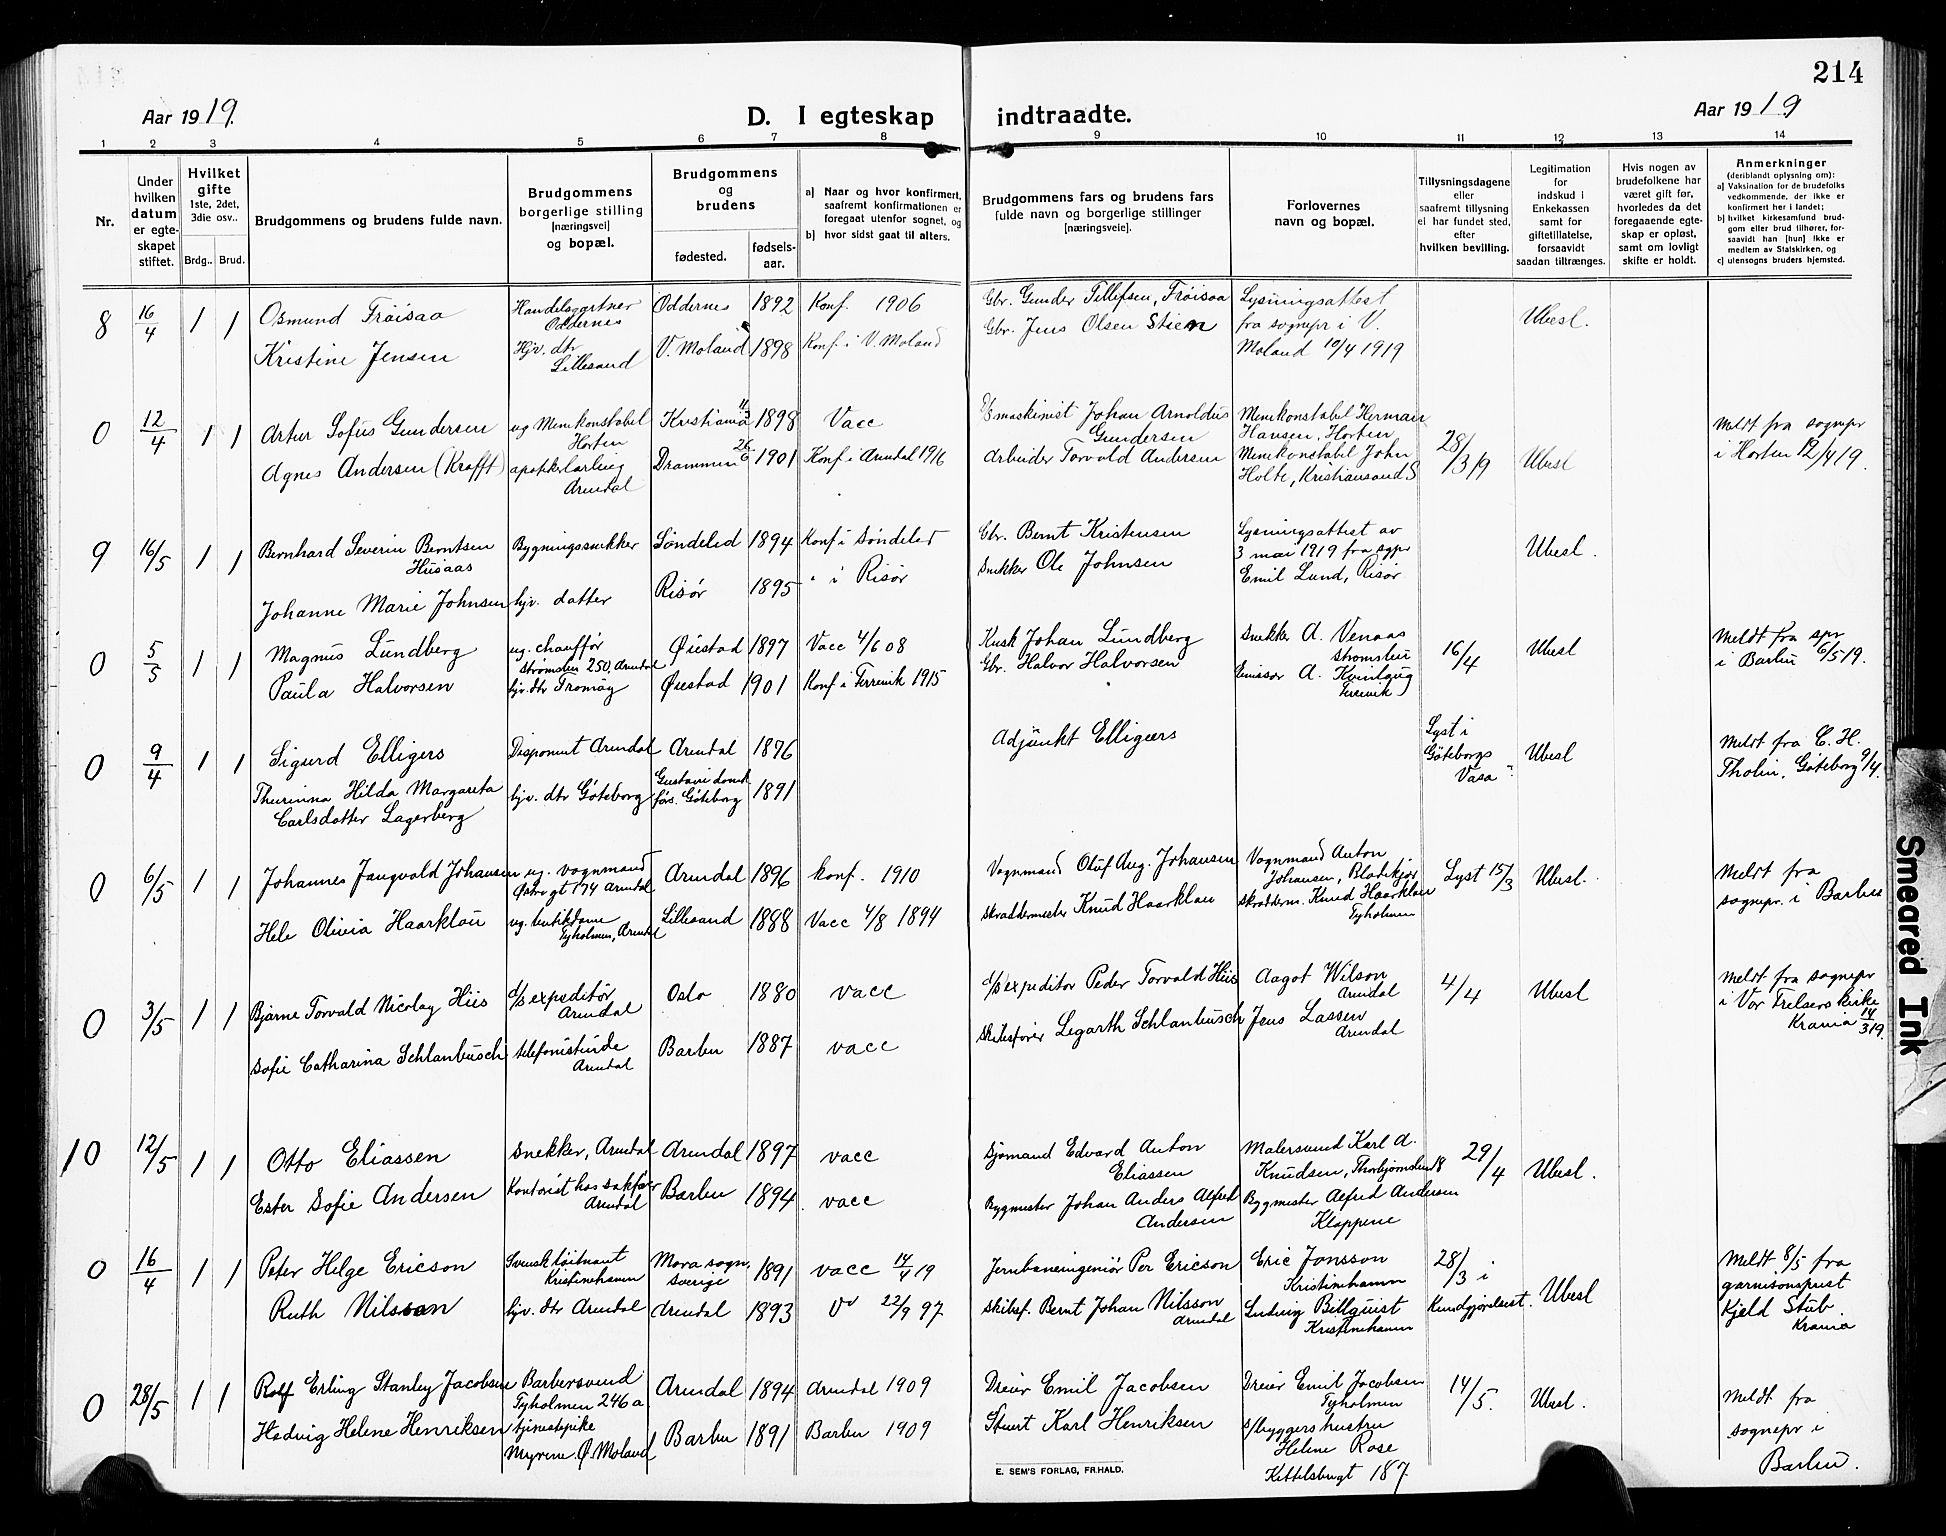 214
Aar 1919.
D. I egteskap indtraadte.
Aar 1919
1 2 3 4 5 6 7 8 9 10 11 12 13 14
Nr.
Under hvilken datum er egte-skapet stiftet.
Hvilket gifte
1ste, 2det, 3die osv..
Brdg.. Brud.
Brudgommens og brudens fulde navn.
Brudgommens borgerlige stilling [næringsvei] og bopæl.
Brudgommens og brudens
fødested.
fødsels-aar.
a) Naar og hvor konfirmert, saafremt konfirmationen er foregaat utenfor sognet, og
b) hvor sidst gaat til alters.
Brudgommens fars og brudens fars fulde navn og borgerlige stillinger [næringsveie].
Forlovernes navn og bopæl.
Tillysningsdagene eller saafremt tillysning ei har fundet sted, efter hvilken bevilling.
Legitimation for indskud i Enkekassen samt for giftetillatelse, forsaavidt saadan tiltrænges.
Hvis nogen av brudefolkene har været gift før, hvorledes da det foregaaende egte-skap er opløst, samt om lovligt skifte er holdt.
Anmerkninger
(deriblandt oplysning om):
a) Vaksination for de brudefolks vedkommende, der ikke er konfirmert her i landet;
b) hvilket kirkesamfund brud-gom eller brud tilhører, for-saavidt han [hun] ikke er medlem av Statskirken, og
c) utensogns bruders hjemsted.
8 16/4 1 1 Osmund Frøisaa Handelsgartner Oddernes Oddernes 1892 Konf. 1906 Gbr. Gunder Tellefsen, Frøisaa Lysningsattest fra sognepr i V. Moland 10/4 1919 Ubesl.
Kristine Jensen Hjv. dtr Lillesand V. Moland 1898 Konf i V. Moland Gbr. Jens Olsen Stien
0 12/4 1 1 Artur Sofus Gundersen ug Minekonstabel Horten Kristiania 11/3 1898 Vacc D/S maskinist Johan Arnoldus Gundersen Minekonstabel Herman Hansen, Horten 28/3 19 Ubesl Meldt fra sognepr i Horten 12/4 19.
Agnes Andersen (Krafft) apoteklærling Arendal Drammen 26/6 1901 Konf i Arendal 1916 Arbeider Torvald Andersen Minekonstabel John Holte, Kristiansand S
9 16/5 1 1 Bernhard Severin Berntsen Husaas Bygningssnekker Søndeled 1894 Konf i Søndeled Gbr. Bernt Kristensen Lysningsattest av 3 mai 1919 fra sgpr Emil Lund, Risør Ubesl.
Johanne Marie Johnsen hjv. datter Risør 1895 " i Risør Snekker Ole Johnsen
0 5/5 1 1 Magnus Lundberg ug. chauffør Strømsbu 250, Arendal Øiestad 1897 Vacc 4/6 08 Kusk Johan Lundberg Snekker A. Venaas Strømsbu 16/4 Ubesl Meldt fra spr i Barbu 6/5 19.
Paula Halvorsen hjv. dtr Tromøy Øiestad 1901 Konf i Fevik 1915 Gbr. Halvor Halvorsen Emissær A. Kvinlaug
0 9/4 1 1 Sigurd Elligers Disponent Arendal Arendal 1876 Adjunkt Elligers Lyst i Göteborgs Vasa Ubesl Meldt fra C. H. Tholin, Göteborg 9/4.
Thurinna Hilda Margareta Carlsdotter Lagerberg hjv. dtr Göteborg Gustavi domk förs. Göteborg 1891
0 6/5 1 1 Johannes Jangvald Johansen ug. vognmand Østregt 174 Arendal Arendal 1896 konf. 1910 Vognmand Oluf Aug. Johansen Vognmand Anton Johansen, Blødekjær Lyst 15/3 Ubesl. Meldt fra sognepr. i Barbu
Hele Olivia Haarklau ug. butikdame Tyholmen, Arendal Lillesand 1888 Vacc 4/8 1894 Skræddermester Knud Haarklau Skrædderm. Knud Haarklau Tyholmen
0 3/5 1 1 Bjarne Torvald Nicolay Hiis d/s expeditør Arendal Oslo 1880 vacc d/s expeditør Peder Torvald Hiis Aagot Wilson Arendal 4/4 Ubesl Meldt fra sognepr i Vor Frelsers kirke Krania 14/3 19.
Sofie Catharina Schlanbusch telefonistinde Arendal Barbu 1887 vacc Skibsfører Legarth Schlanbusch Jens Lassen Arendal
10 12/5 1 1 Otto Eliassen Snekker, Arendal Arendal 1897 vacc Sjømand Edvard Anton Eliassen Malersvend Karl A. Knudsen, Thorbjørnsbu 18 29/4 Ubesl.
Ester Sofie Andersen Kontorist hos sakfører Arendal Barbu 1894 vacc Bygmester Johan Anders Alfred Andersen Bygmester Alfred Andersen Kloppene
0 16/4 1 1 Peter Helge Ericson Svensk løitnant Kristinehamn Mora sogn, Sverige 1891 vacc 14/4 19 Jernbaneingeniør Per Ericson Eric Jonsson Kristinehamn 28/3 i Kundgjørelsest. Ubesl Meldt 8/5 fra garnisonsprest Kjeld Stub. Krania
Ruth Nilsson hjv. dtr Arendal Arendal 1893 V 22/9 97 Skibsf. Bernt Johan Nilsson Arendal Ludvig Billquist Kristinehamn
0 28/5 1 1 Rolf Erling Stanley Jacobsen Barbersvend Tyholmen 246 a Arendal 1894 Arendal 1909 Dreier Emil Jacobsen Dreier Emil Jacobsen Tyholmen 14/5. Ubesl. Meldt fra sognepr i Barbu.
Hedvig Helene Henriksen tjenestepike Myrene Ø. Moland Barbu 1891 Barbu 1909 Stuert Karl Henriksen s/byggers hustru Helene Rose Kittelsbugt 187.
E. SEM'S FORLAG, FR.HALD.
Smeared Ink